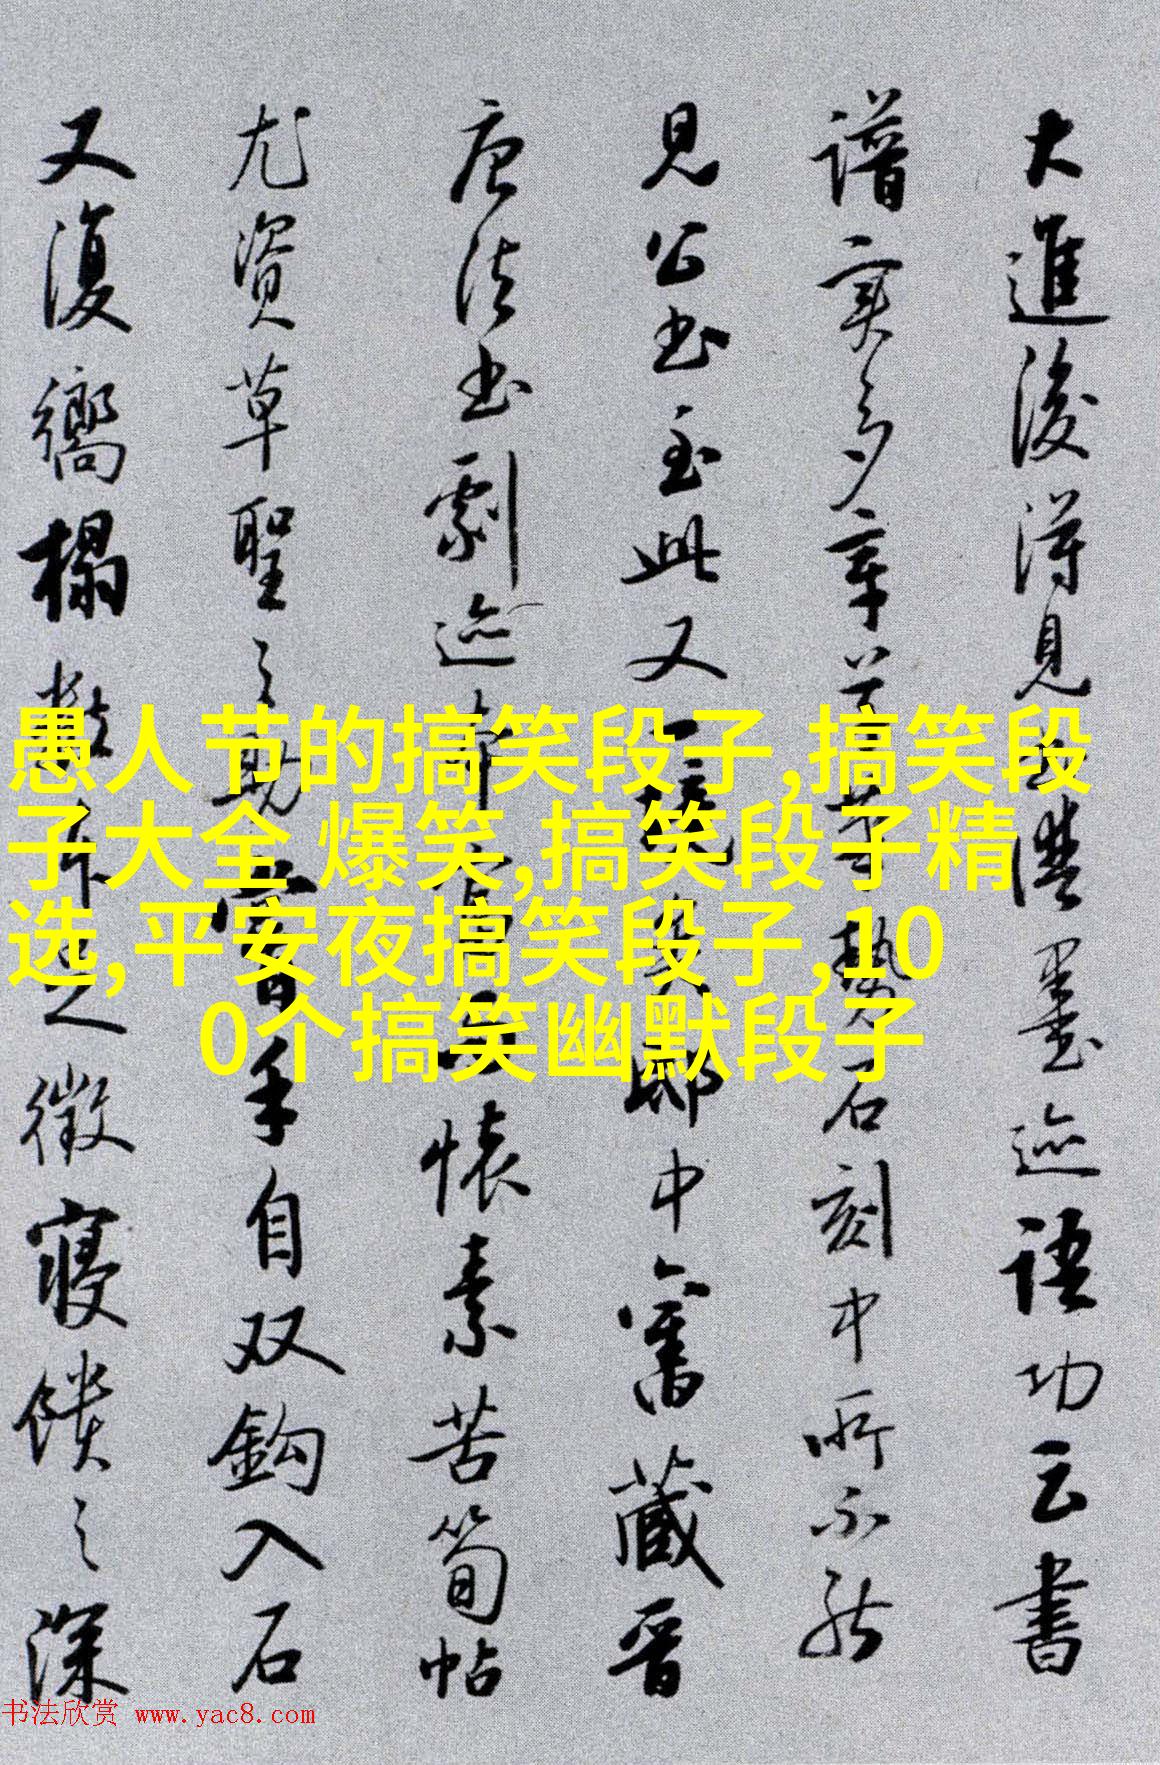 大進後得見□□濃墨迹語功云書
譜实多章草□草□勢石刻中所不能
見公书至此又一境□□邸中旧藏晋
唐法书剧迹□□□□懷素苦筍帖
尤資草聖之助□嘗手自双鈎入石
又復嚮搨數□□之徵寢饋之深
愚人节的搞笑段子,搞笑段
子大全 爆笑,搞笑段子精
选,平安夜搞笑段子,10
0个搞笑幽默段子
书法欣赏 www.yac8.com